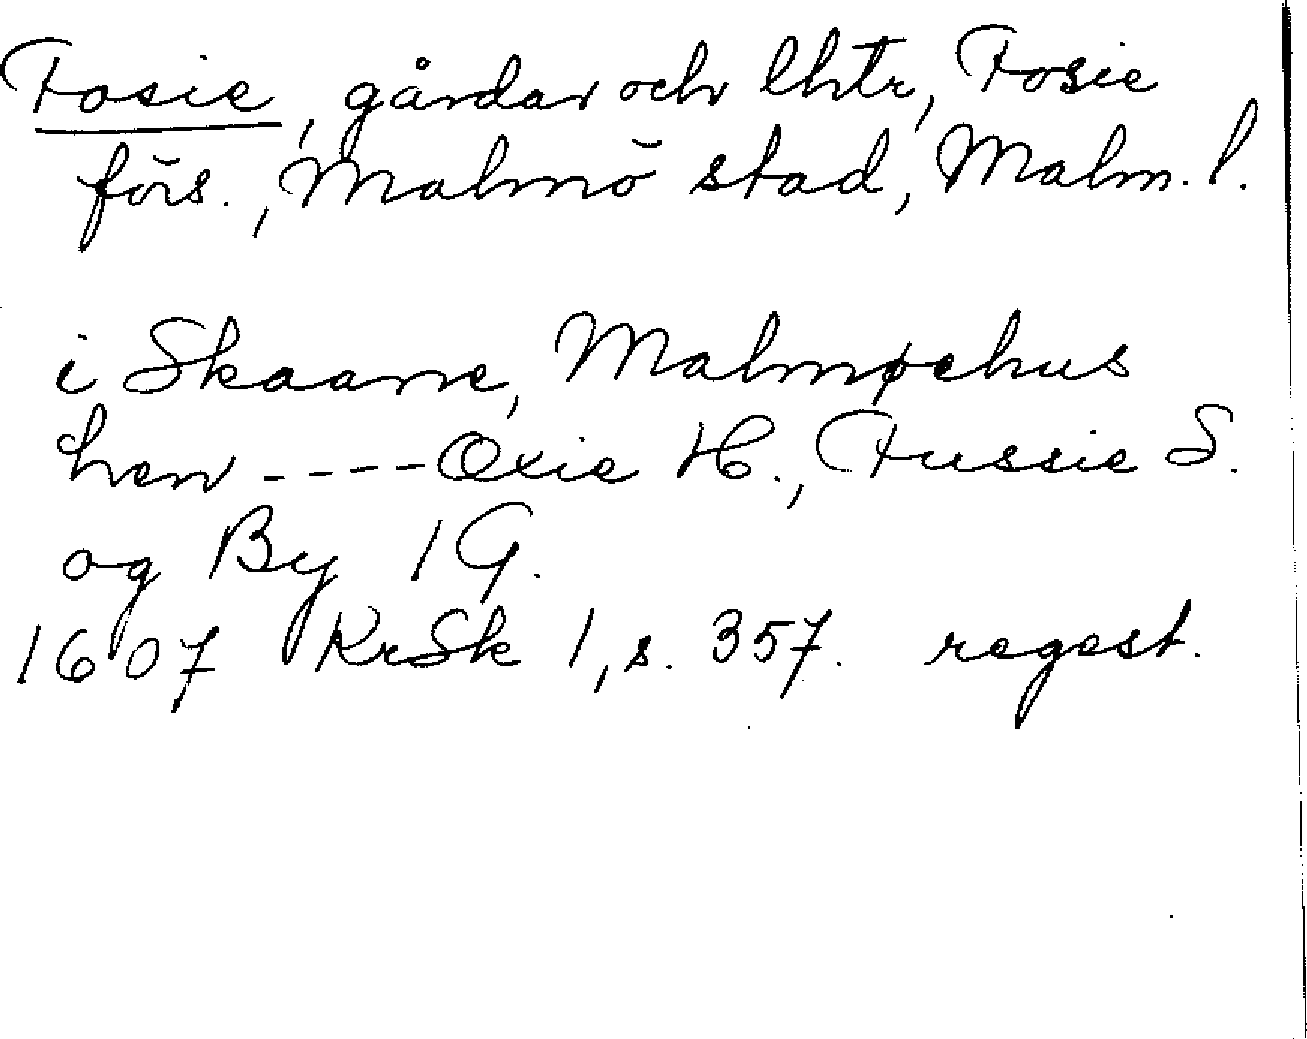 Fosie, gårdar och lhtr, Fosie
förs., Malmö stad, Malm. l.
i Skaane, Malmøehus
hen ---- Oxie H., Fussie S.
og By 1 G.
1607 KrSk 1, s. 357. regest.